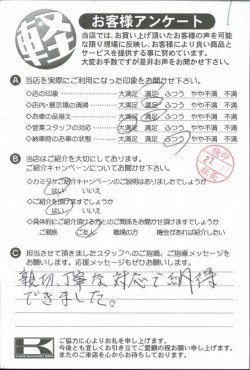 軽
お客様アンケート
当店では、お買い上げ頂いたお客様の声を可能
な限り現場に反映し、お客様により良い商品と
サービスを提供する事に努めています。
大変お手数ですが是非お声をお聞かせ下さい。
A 当店を実際にご利用になった印象をお聞かせ下さい。
◇店の印象 大満足 満足 ふつう やや不満 不満
◇店内・展示場の清掃 大満足 満足 ふつう やや不満 不満
◇お車の品揃え 大満足 満足 ふつう やや不満 不満
◇営業スタッフの対応 大満足 満足 ふつう やや不満 不満
◇納車時のお車の状態 大満足 満足 ふつう やや不満 不満
B 当店はご紹介を大切にしております。
ご紹介キャンペーンについてお聞かせ下さい。
◇カミタケご紹介キャンペーンのご説明はありましたでしょうか
はい いいえ
◇ご紹介を頂けますでしょうか
はい いいえ
◇具体的にご紹介頂ける方とのご関係をお聞かせ頂けますでしょうか
ご親族 ご友人 職場の方 機会があれば紹介したい
C 担当させて頂きましたスタッフへのご指摘、ご指導メッセージを
お願いします。応援メッセージもぜひお願いします。
親切、丁寧な対応で納得
できました。
K
ご協力に心よりお礼を申し上げます。
今後とも宜しくお引き立てご愛顧の程お願い申し上げます。
またのご来店を心からお待ちしております。